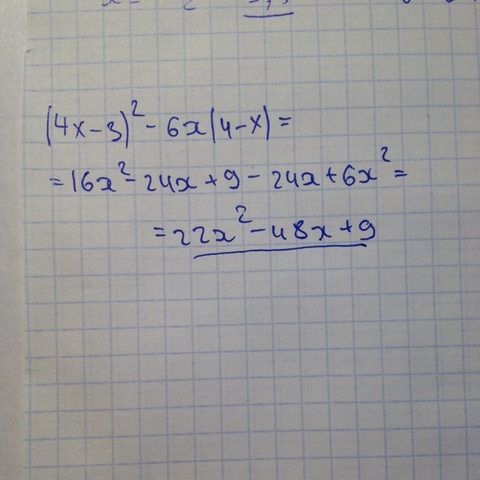 (4x-3)² - 6x(4-x) =
= 16x² - 24x + 9 - 24x + 6x² =
= 22x² - 48x + 9